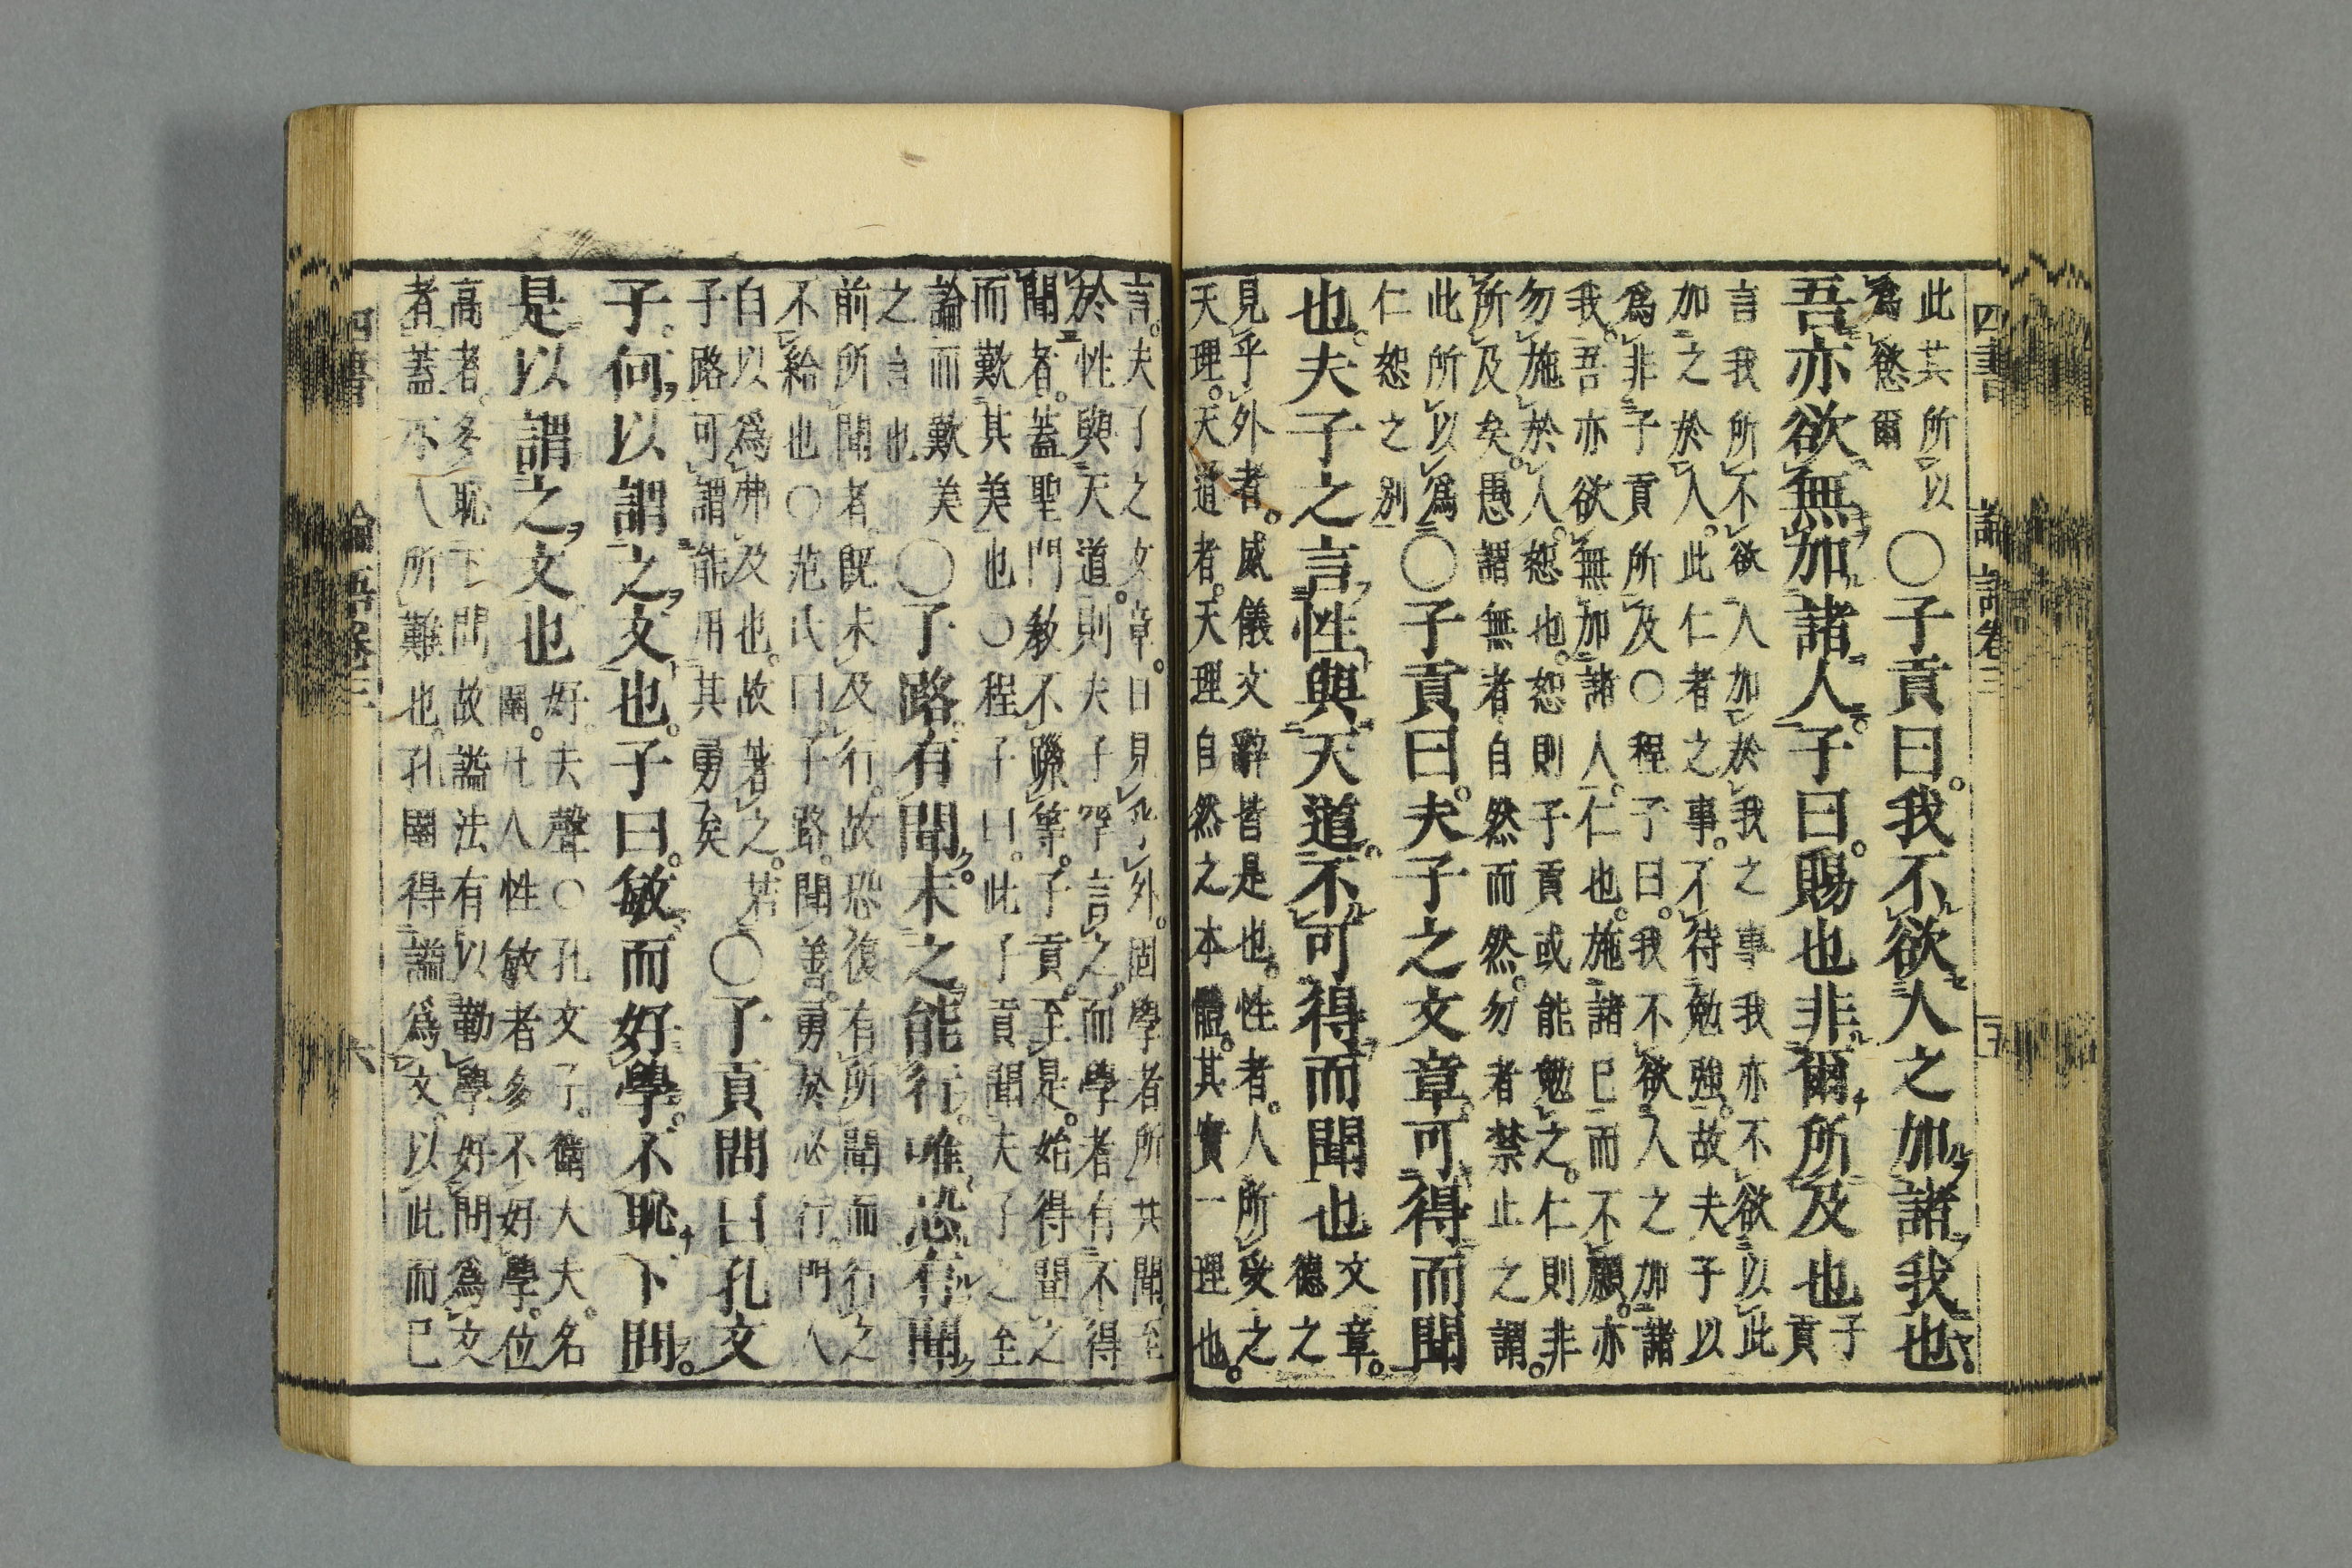 四書 論語卷三 五
此其所以
爲慾爾
○子貢曰。我不欲人之加諸我也。
吾亦欲無加諸人。子曰。賜也非爾所及也
子
貢
言我所不欲人加於我之事我亦不欲以此
加之於人。此仁者之事。不待勉強。故夫子以
爲非子貢所及○程子曰。我不欲人之加諸
我。吾亦欲無加諸人。仁也。施諸己而不願。亦
勿施於人。恕也。恕則子貢或能勉之。仁則非
所及矣。愚謂無者自然而然。勿者禁止之謂。
此所以爲
仁恕之別
○子貢曰。夫子之文章。可得而聞
也。夫子之言性與天道。不可得而聞也
文章。
德之
見乎外者。威儀文辭皆是也。性者。人所受之
天理。天道者。天理自然之本體。其實一理也。
言。夫子之文章。日見乎外。固學者所共聞。至
於性與天道。則夫子罕言之。而學者有不得
聞者。蓋聖門敎不躐等。子貢。至是。始得聞之
而歎其美也○程子曰。此子貢聞夫子之至
論而歎美
之言也
○子路有聞。未之能行。唯恐有聞
前所聞者。既未及行。故恐復有所聞而行之
不給也○范氏曰。子路。聞善。勇於必行。門人
自以爲弗及也。故著之。若
子路可謂能用其勇矣
○子貢問曰孔文
子。何以謂之文也。子曰。敏而好學。不恥下問。
是以謂之文也
好去聲○孔文子。衞大夫。名
圉。凡人性敏者多不好學。位
高者。多恥下問。故謚法有以勤學好問爲文
者。蓋亦人所難也。孔圉得謚爲文。以此而已
四書 論語卷三 六